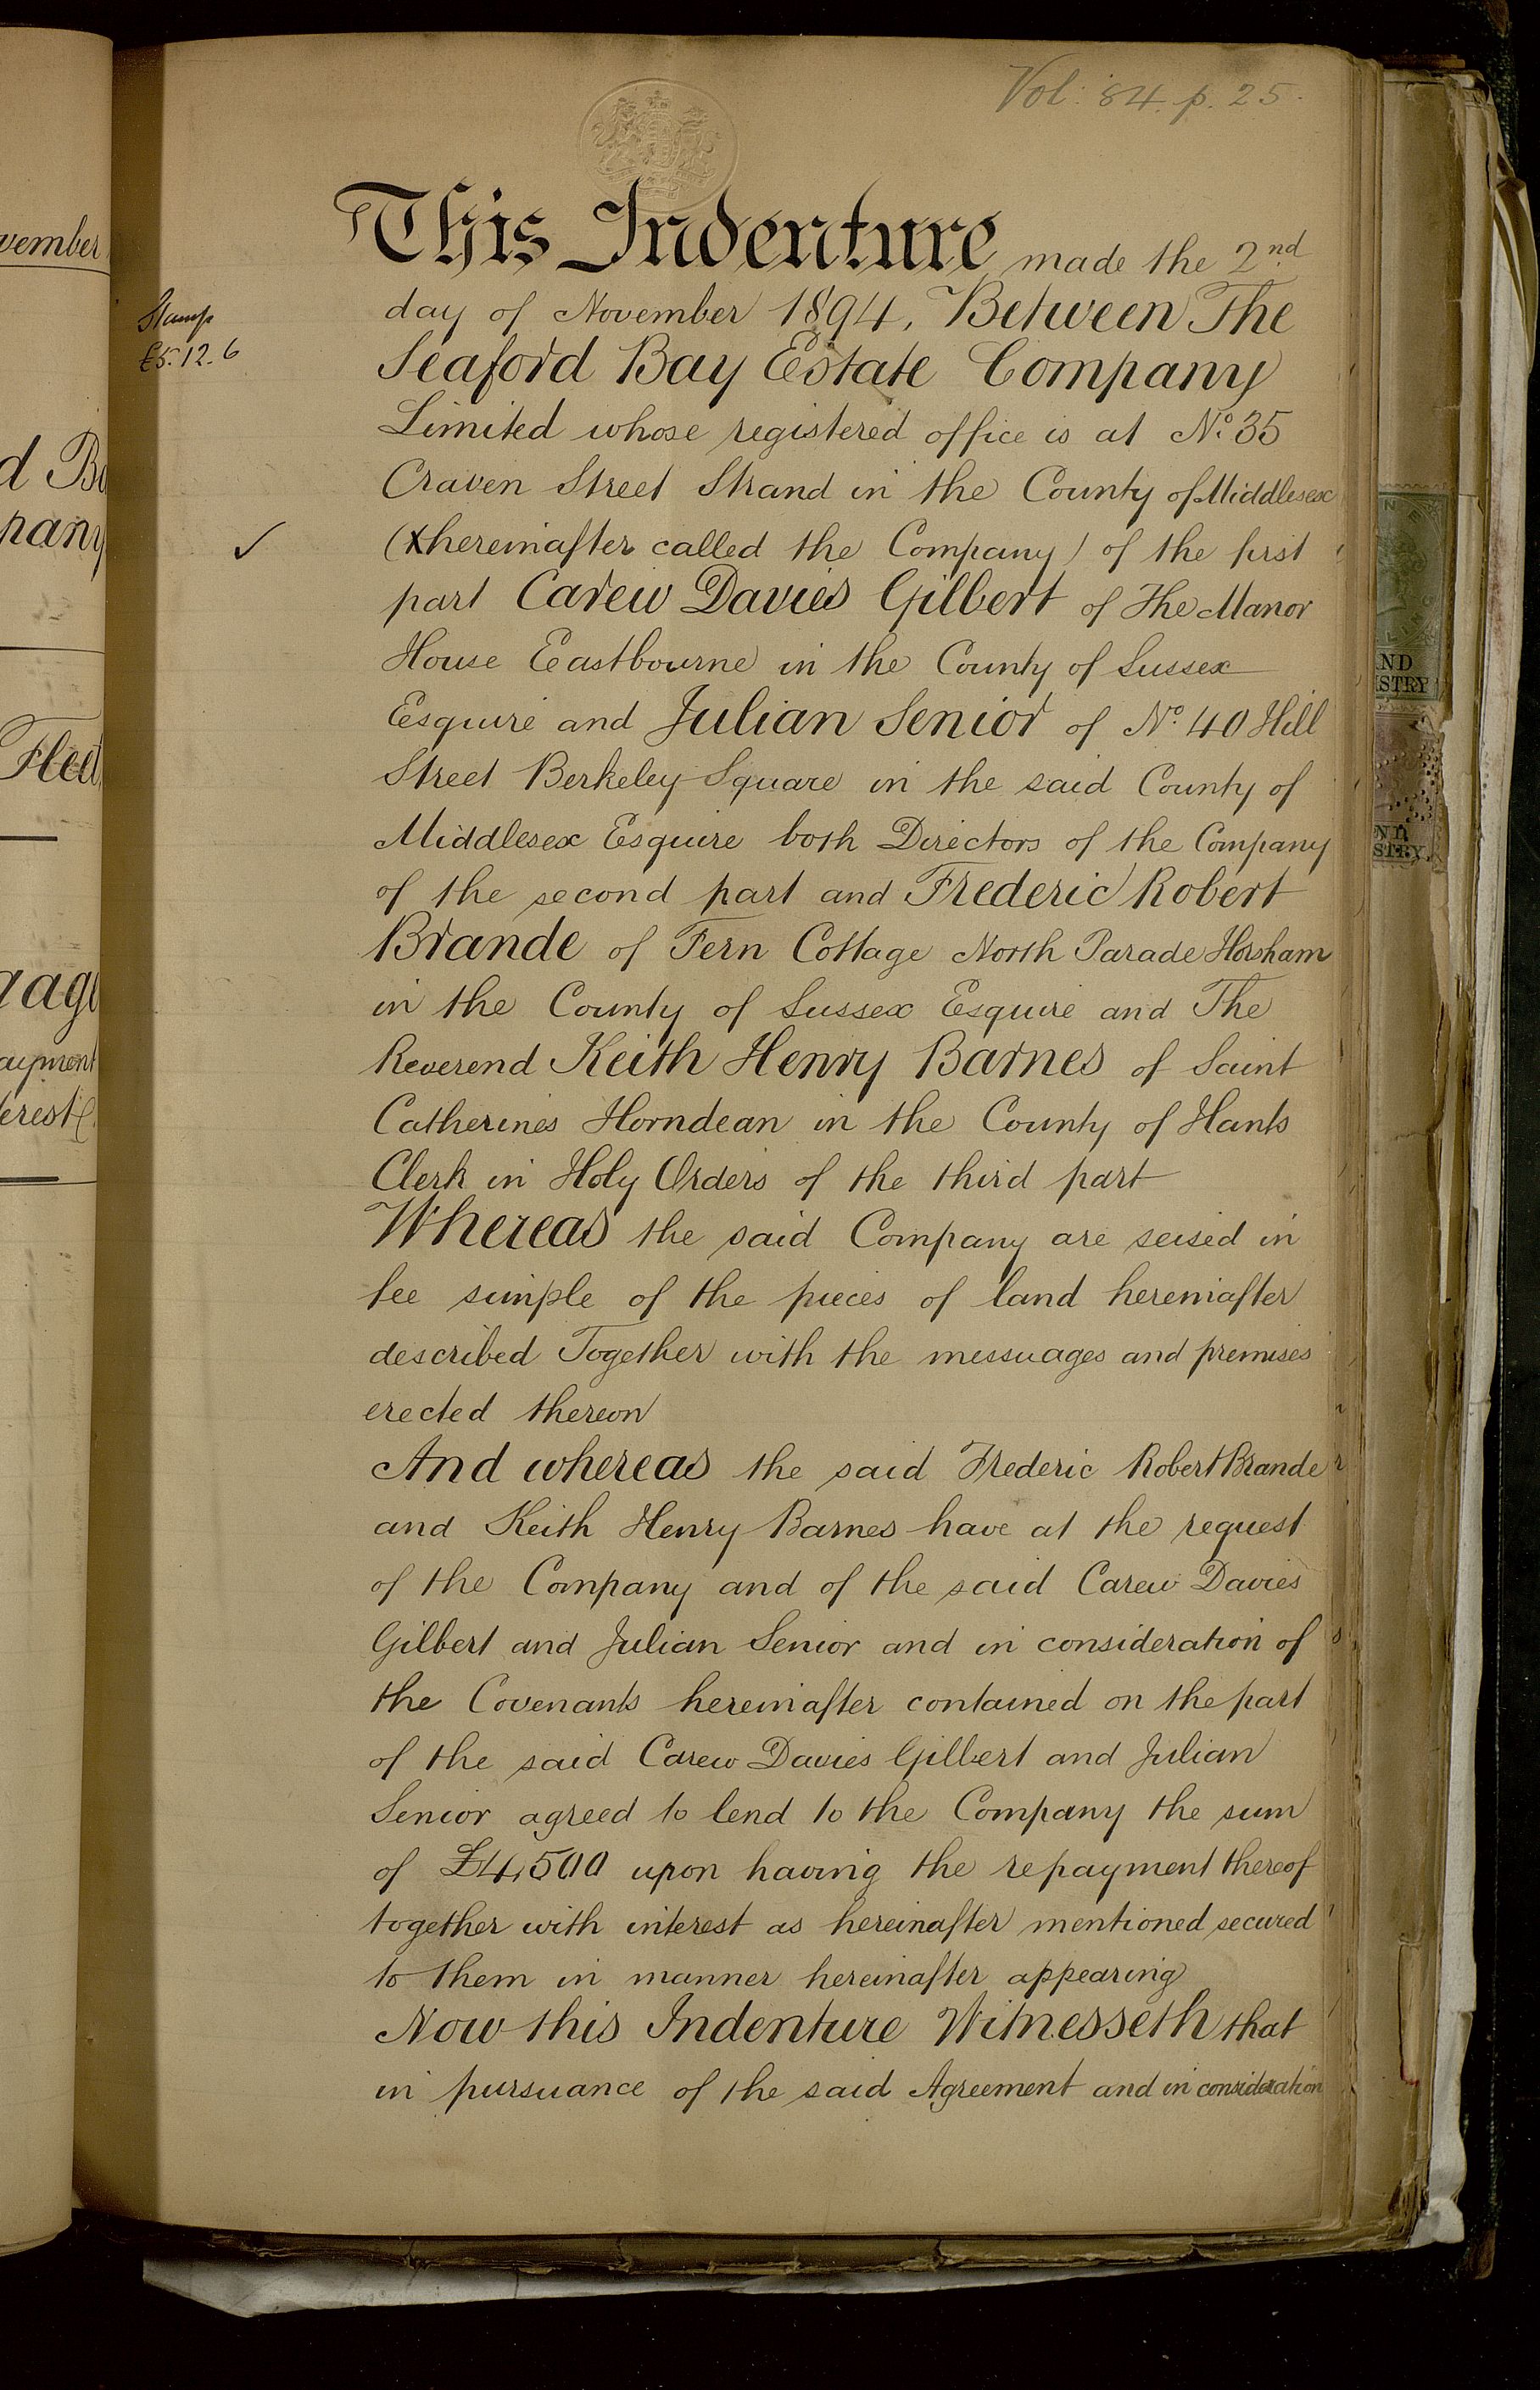 Vol: 84. p. 25.
This Indenture made the 2nd
day of November 1894, Between The
Stamp
£5. 12. 6
Seaford Bay Estate Company
Limited whose registered office is at No. 35
Craven Street Strand in the County of Middlesex
(hereinafter called the Company) of the first
part Carew Davies Gilbert of The Manor
House Eastbourne in the County of Sussex
Esquire and Julian Senior of No. 40 Hill
Street Berkeley Square in the said County of
Middlesex Esquire both Directors of the Company
of the second part and Frederic Robert
Brande of Fern Cottage North Parade Horsham
in the County of Sussex Esquire and The
Reverend Keith Henry Barnes of Saint
Catherines Horndean in the County of Hants
Clerk in Holy Orders of the third part
Whereas the said Company are seised in
fee simple of the pieces of land hereinafter
described Together with the messuages and premises
erected thereon
And whereas the said Frederic Robert Brande
and Keith Henry Barnes have at the request
of the Company and of the said Carew Davies
Gilbert and Julian Senior and in consideration of
the Covenants hereinafter contained on the part
of the said Carew Davies Gilbert and Julian
Senior agreed to lend to the Company the sum
of £4,500 upon having the repayment thereof
together with interest as hereinafter mentioned secured
to them in manner hereinafter appearing
Now this Indenture Witnesseth that
in pursuance of the said Agreement and in consideration